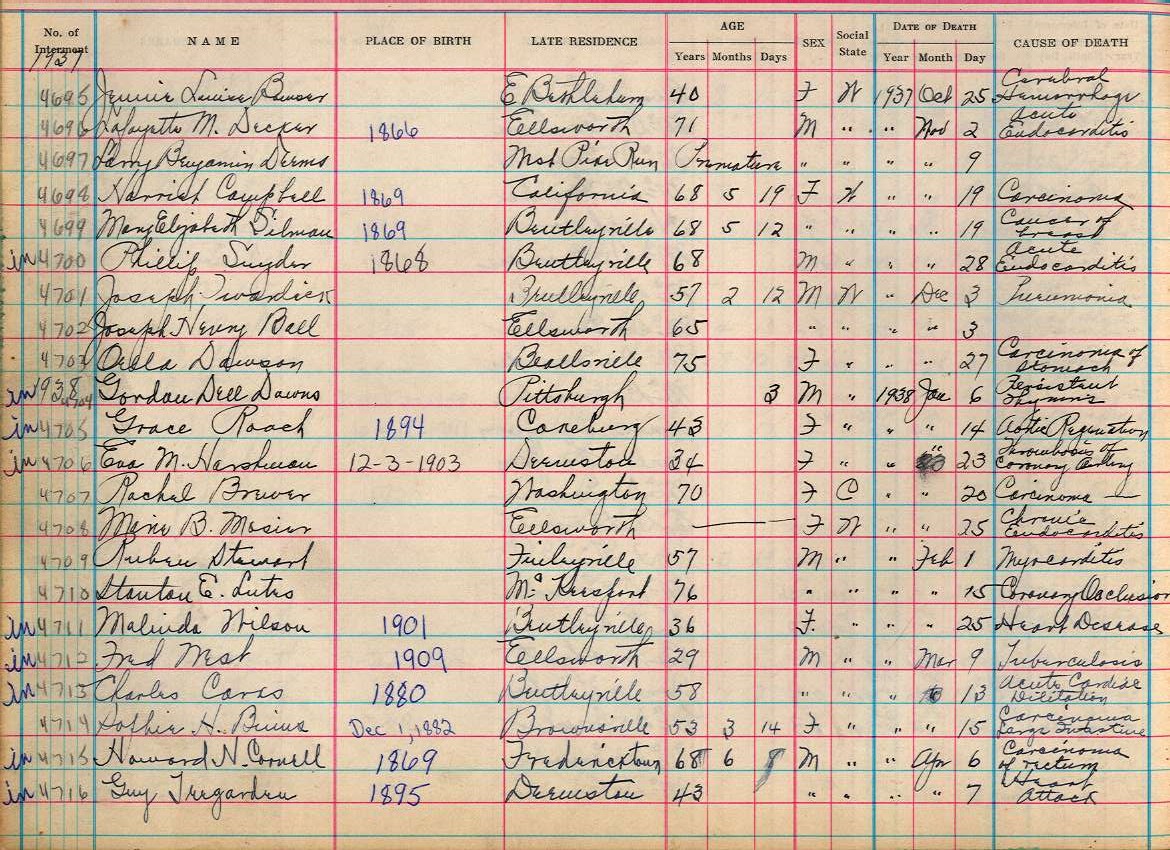 No. of Interment NAME PLACE OF BIRTH LATE RESIDENCE AGE Years Months Days SEX Social State DATE OF DEATH Year Month Day CAUSE OF DEATH
1937
4695 Jennie Louise Bowser E Bethlehem 40 F W 1937 Oct 25 Cerebral Hemorrhage
4696 Lafayette M. Decker 1866 Ellsworth 71 M " " Nov 2 Acute Endocarditis
4697 Larry Benjamin Deems West Pike Run Premature " " " " 9
4698 Harriet Campbell 1869 California 68 5 19 F W " " 19 Carcinoma
4699 Mary Elizabeth Gilman 1869 Bentleyville 68 5 12 " " " " 19 Cancer of breast
in 4700 Phillip Snyder 1868 Bentleyville 68 M " " " 28 Acute Endocarditis
4701 Joseph Twardick Bentleyville 57 2 12 M W " Dec 3 Pneumonia
4702 Joseph Henry Ball Ellsworth 65 " " " " 3
4703 Della Dawson Beallsville 75 F " " " 27 Carcinoma of Stomach
1938
in 4704 Gordon Dell Downs Pittsburgh 3 M " 1938 Jan 6 Persistent Thymus
in 4705 Grace Roach 1894 43 F " " " 14
in 4706 Eva M. Harshman 12-3-1903 Deemston 34 F " " " 23 Thrombosis of Coronary Artery
4707 Rachel Brewer Washington 70 F C " " 20 Carcinoma —
4708 B. Mosier Ellsworth — F W " " 25 Chronic Endocarditis
4709 Ruben Stewart Finleyville 57 M " " Feb 1 Myocarditis
4710 Stanton E. Lutes McKeesport 76 " " " " 15 Coronary Occlusion
in 4711 Malinda Wilson 1901 Bentleyville 36 F. " " " 25 Heart Disease
in 4712 Fred West 1909 Ellsworth 29 M " " Mar 9 Tuberculosis
in 4713 Charles Caras 1880 Bentleyville 58 " " " 13 Acute Cardiac Dilitation
4714 Sophie H. Binns Dec 1, 1882 Brownsville 53 3 14 F " " " 15 Carcinoma Large Intestine
in 4715 Howard N. Cornell 1869 Fredericktown 68 6 8 M " " Apr 6 Carcinoma of rectum
in 4716 Guy Tregarden 1895 Deemston 43 " " " " 7 Heart Attack